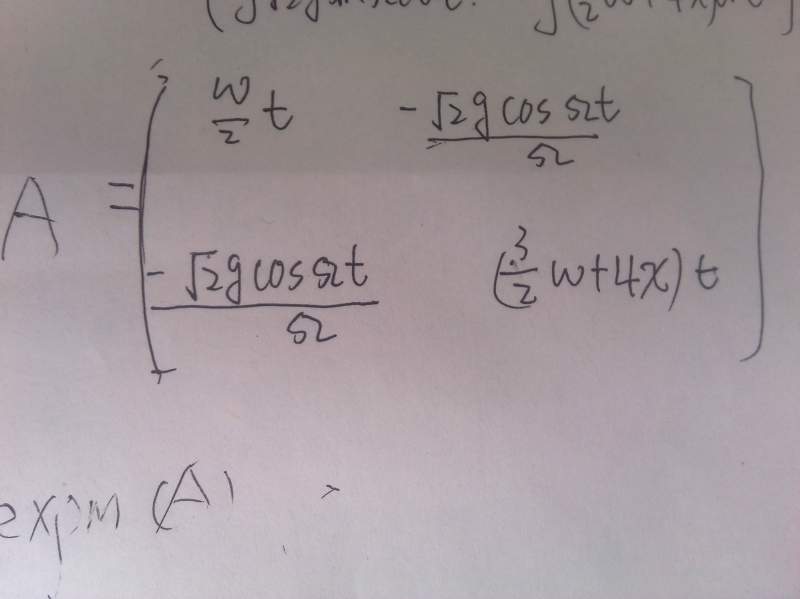 A = ( ω/2 t   - √2 g cos Ωt / Ω
- √2 g cos Ωt / Ω   (3/2 ω + 4x) t )
expm (A)